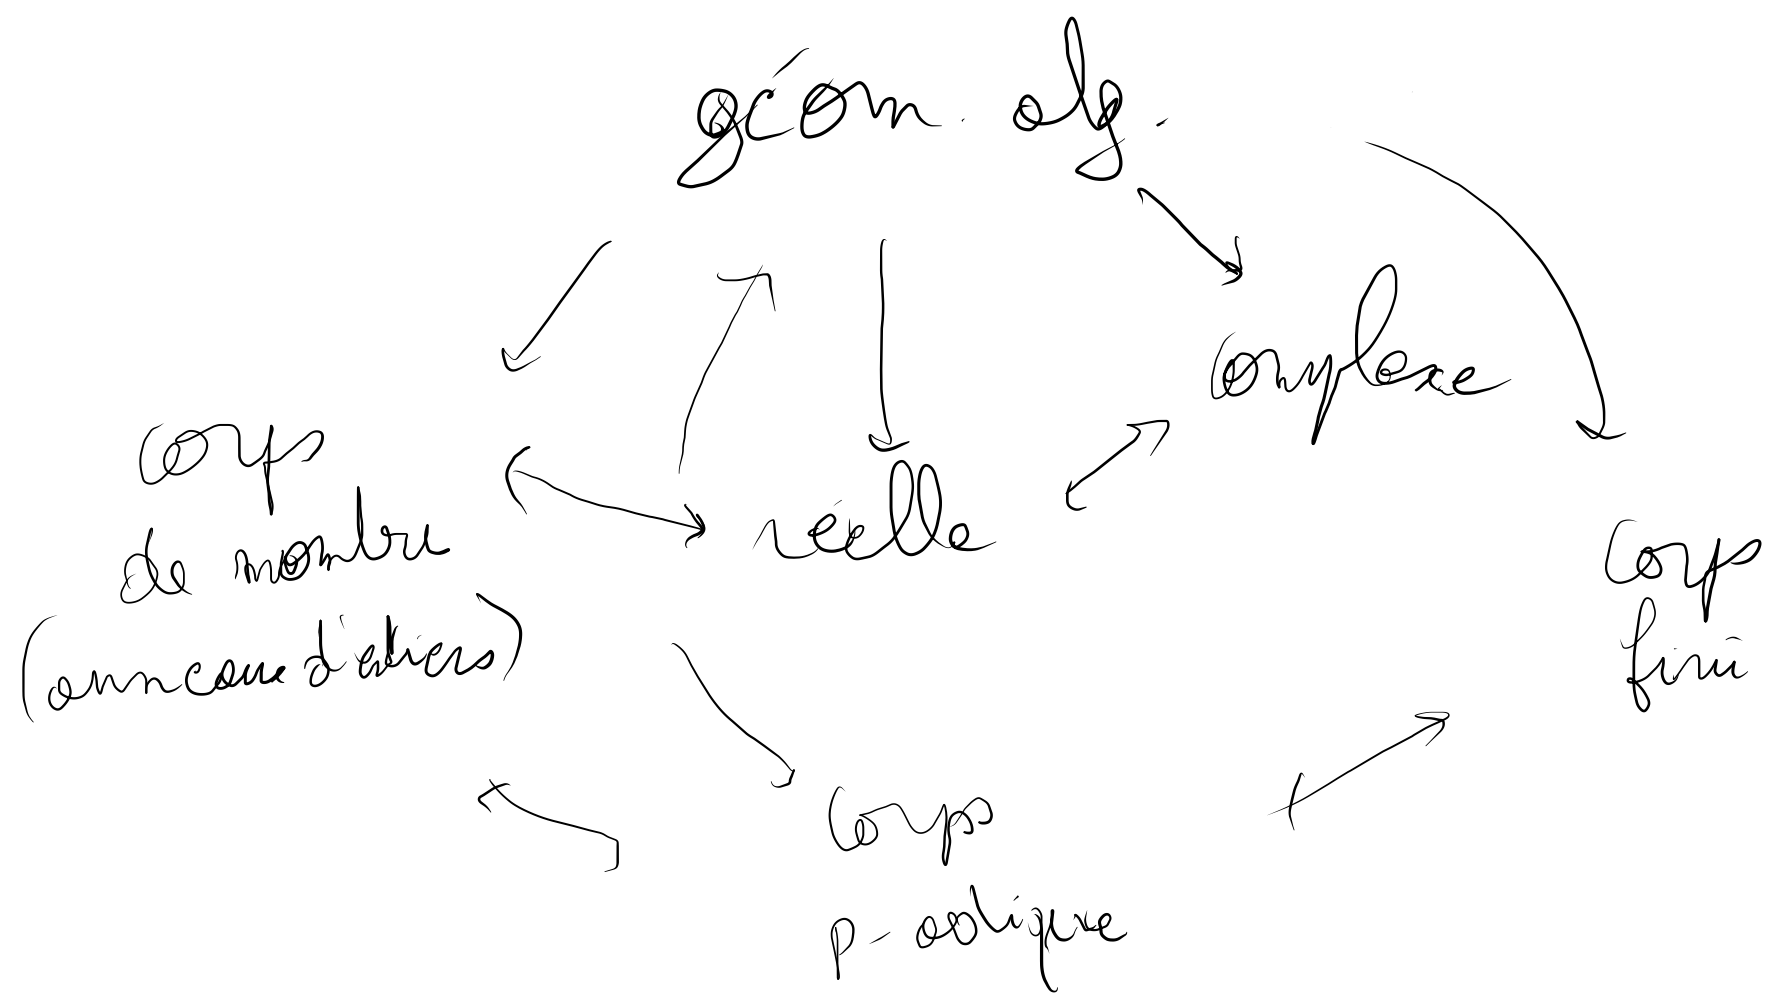 géom. alg.
complexe
corps
de nombre
(anneaux d'entiers)
réelle
corps
fini
corps
p-adique